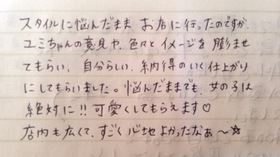 スタイルに悩んだまま お店に行ったのですが、
ユミちゃんの意見や、色々とイメージを膨らませ
てもらい、自分らしい、納得のいく仕上がり
にしてもらいました。悩んだままでも、女の子は
絶対に!!可愛くしてもらえます♡
店内も広くて、すごく心地よかったなぁ〜☆